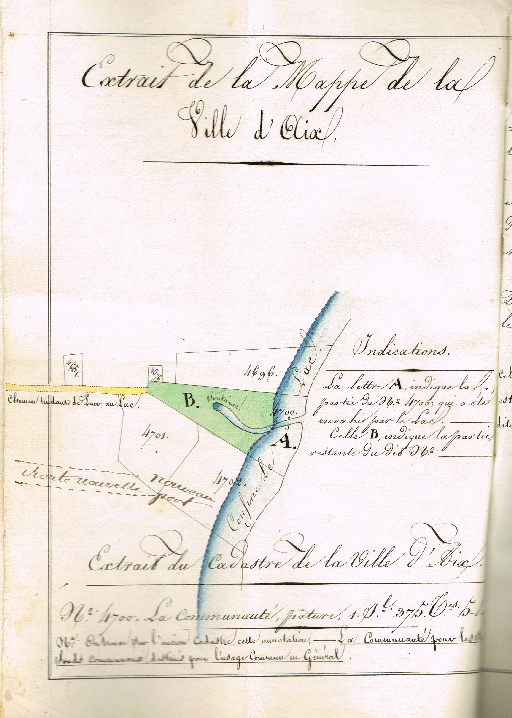 Extrait de la Mappe de la
Ville d'Aix.
4696.
Indications.
La lettre A, indique la
partie du N.° 4700. qui a été
envahie par le Lac.
Celle B, indique la partie
restante du dit N.°
Chemin tendant de Puer au Lac.
B.
4700.
A.
4701.
4702.
Route nouvelle
nouveau
port
Confins du Lac.
Extrait du Cadastre de la Ville d'Aix.
N.° 4700. La Communauté, pâture, 1. J.l 375. T.es 5.
N.° On trouve par l'ancien Cadastre cette annotation, La Communauté pour les
fonds communaux destinés pour l'usage Commun en Général.